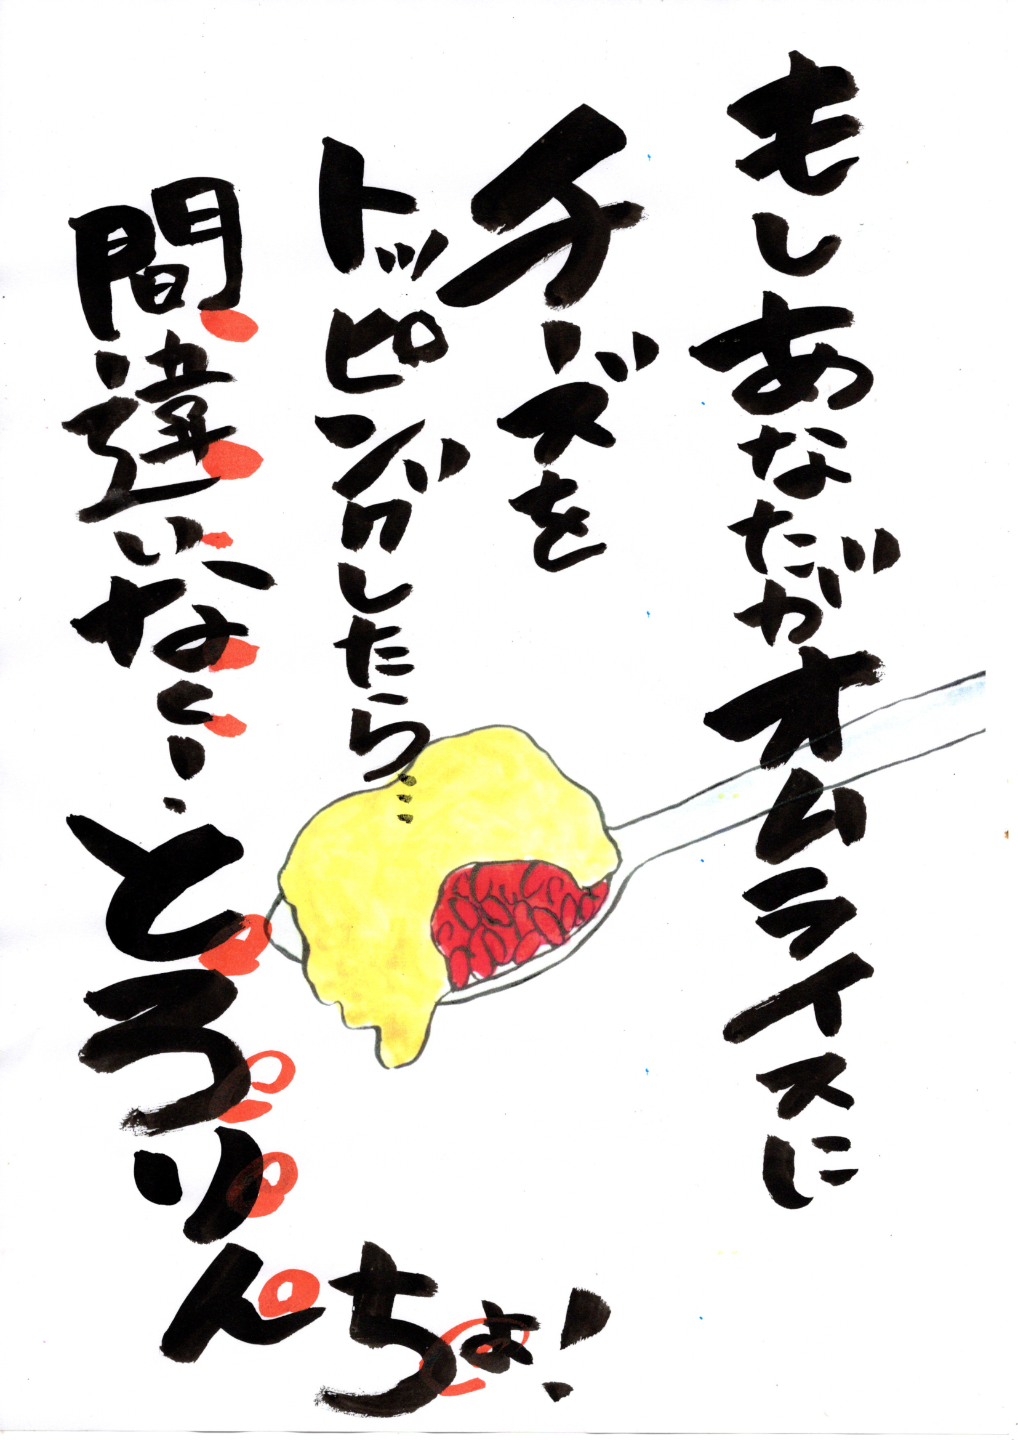 もしあなたがオムライスに
チーズを
トッピングしたら…
間違いなく…
とろりんちょ!